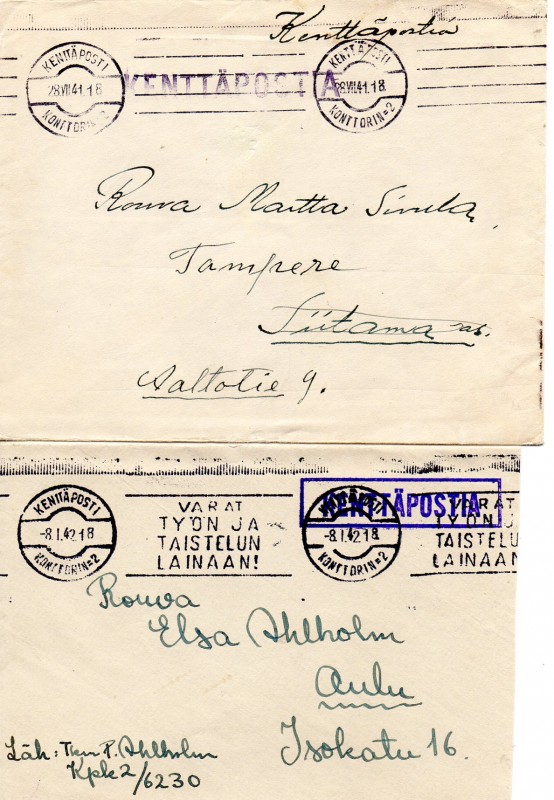 Kenttäpostia
KENTTÄPOSTI
28.VII.41.18
KONTTORI N:2
KENTTÄPOSTIA
KENTTÄPOSTI
28.VII.41.18
KONTTORI N:2
Rouva Martta Sivula,
Tampere
Siitama as.
Aaltotie 9.
KENTTÄPOSTI
-8.I.42.18
KONTTORI N:2
VARAT
TYÖN JA
TAISTELUN
LAINAAN!
KENTTÄPOSTIA
-8.I.42.18
KONTTORI N:2
VARAT
TYÖN J
TAISTELU
LAINAAN
Rouva
Elsa Ahlholm
Oulu
Isokatu 16.
Läh: P. Ahlholm
Kpk 2/6230